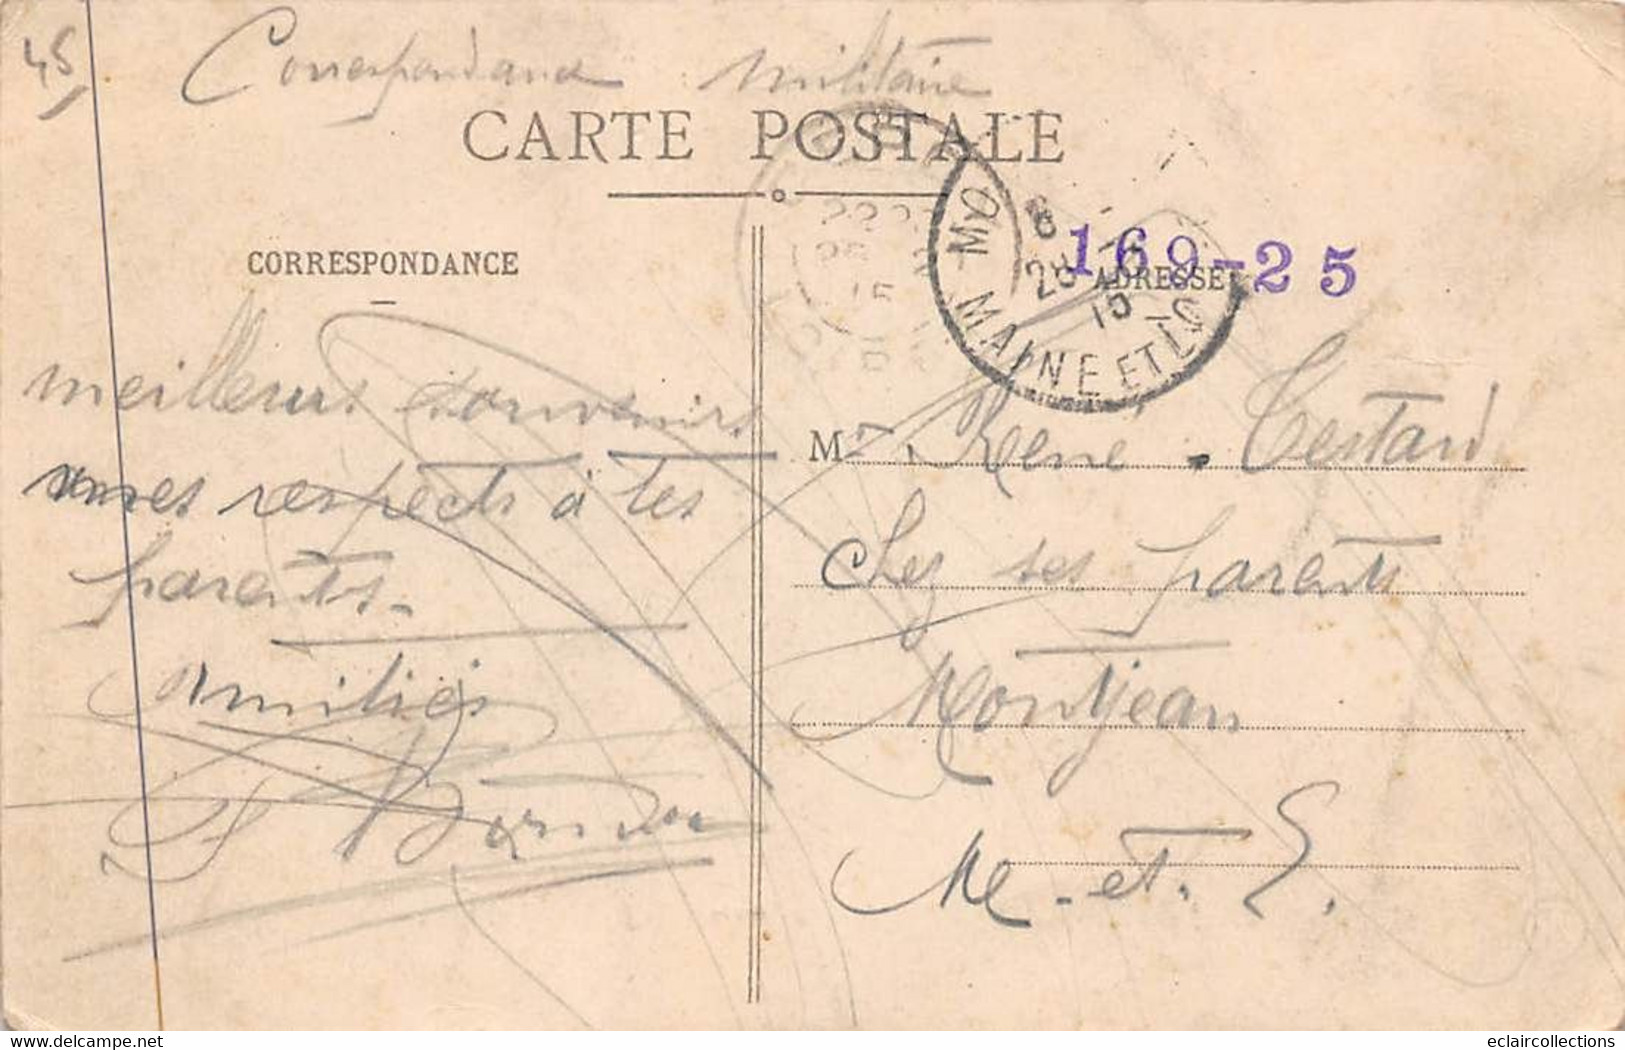 45
Correspondance militaire
CARTE POSTALE
CORRESPONDANCE
ADRESSE
169-25
MO
MAINE ET LO
28
15
meilleurs souvenirs
mes respects à tes
parents.
Amitiés
Mr René Testard
Chez ses parents
Montjean
M. et. L.
delcampe.net
eclaircollections